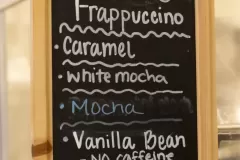 Frappuccino
• Caramel
• White mocha
• Mocha
• Vanilla Bean
NO caffeine